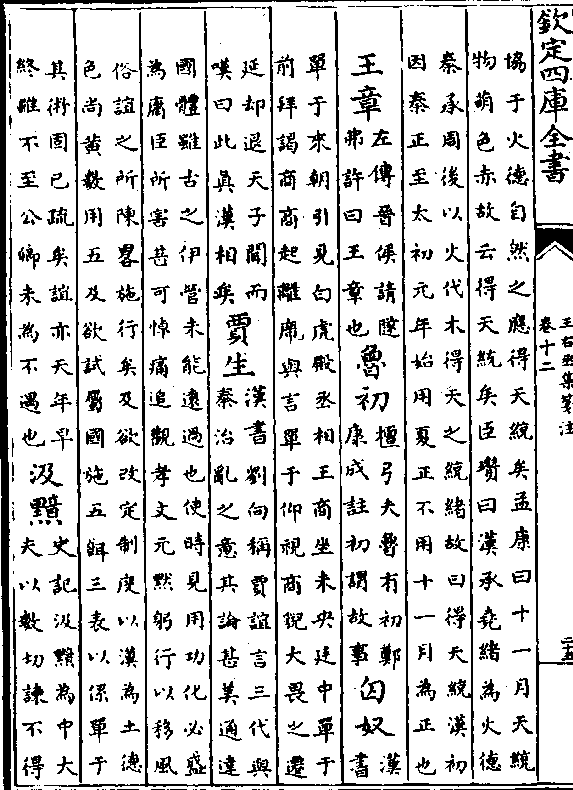 欽定四庫全書
王右丞集箋注
卷十二
二十五
協于火德自然之應得天統矣孟康曰十一月天統
物萌色赤故云得天統矣臣瓚曰漢承堯緒為火德
秦承周後以火代木得天之統緒故曰得天統漢初
因秦正至太初元年始用夏正不用十一月為正也
王章 左傳晉侯請隧弗許曰王章也 魯初 檀弓夫魯有初鄭康成註初謂故事 匈奴 漢書
單于來朝引見白虎殿丞相王商坐未央廷中單于
前拜謁商商起離席與言單于仰視商貌大畏之遷
延却退天子聞而嘆曰此真漢相矣 賈生 漢書劉向稱賈誼言三代與秦治亂之意其論甚美通達
國體雖古之伊管未能遠過也使時見用功化必盛
為庸臣所害甚可悼痛追觀孝文元默躬行以移風
俗誼之所陳畧施行矣及欲改定制度以漢為土德
色尚黃數用五及欲試屬國施五餌三表以係單于
其術固已疏矣誼亦天年早終雖不至公卿未為不遇也 汲黯 史記汲黯為中大夫以數切諫不得